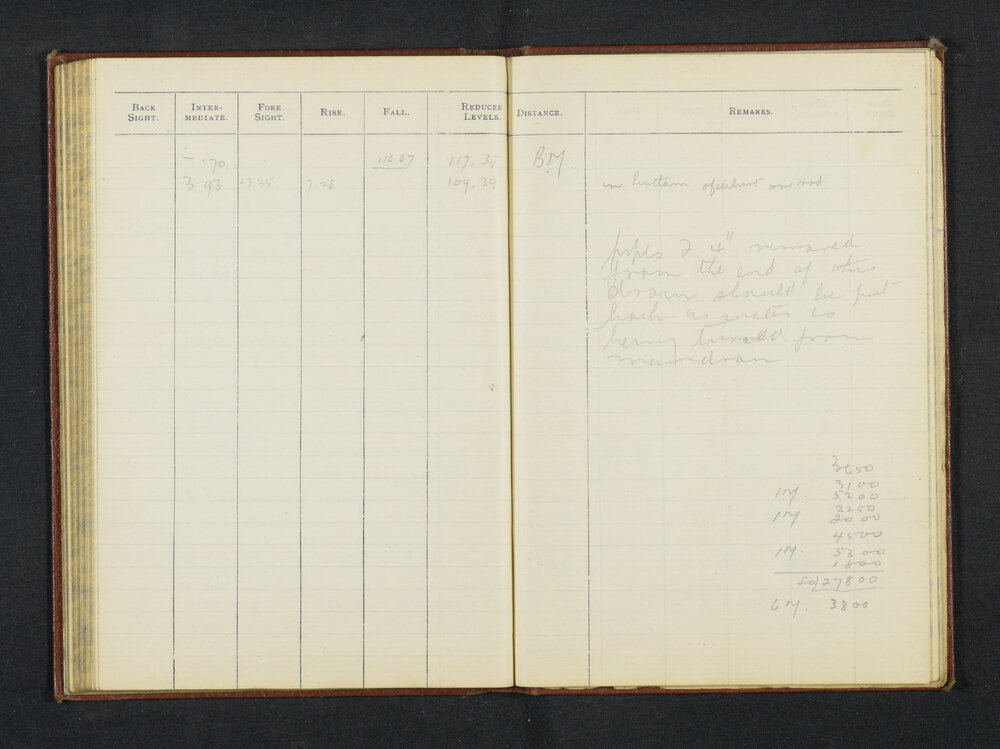 BACK SIGHT. INTER-MEDIATE. FORE SIGHT. RISE. FALL. REDUCED LEVELS. DISTANCE. REMARKS.
.70 116.67 117.35 B.M.
3.93 3.35 7.28 109.39 in bottom of culvert
pipes 2 4" removed
from the end of this
drain should be put
back as water is
being turned from
main drain
3650
3100
1M. 5200
2250
1M 2000
4500
1M. 5300
1800
27800
6 M. 3800